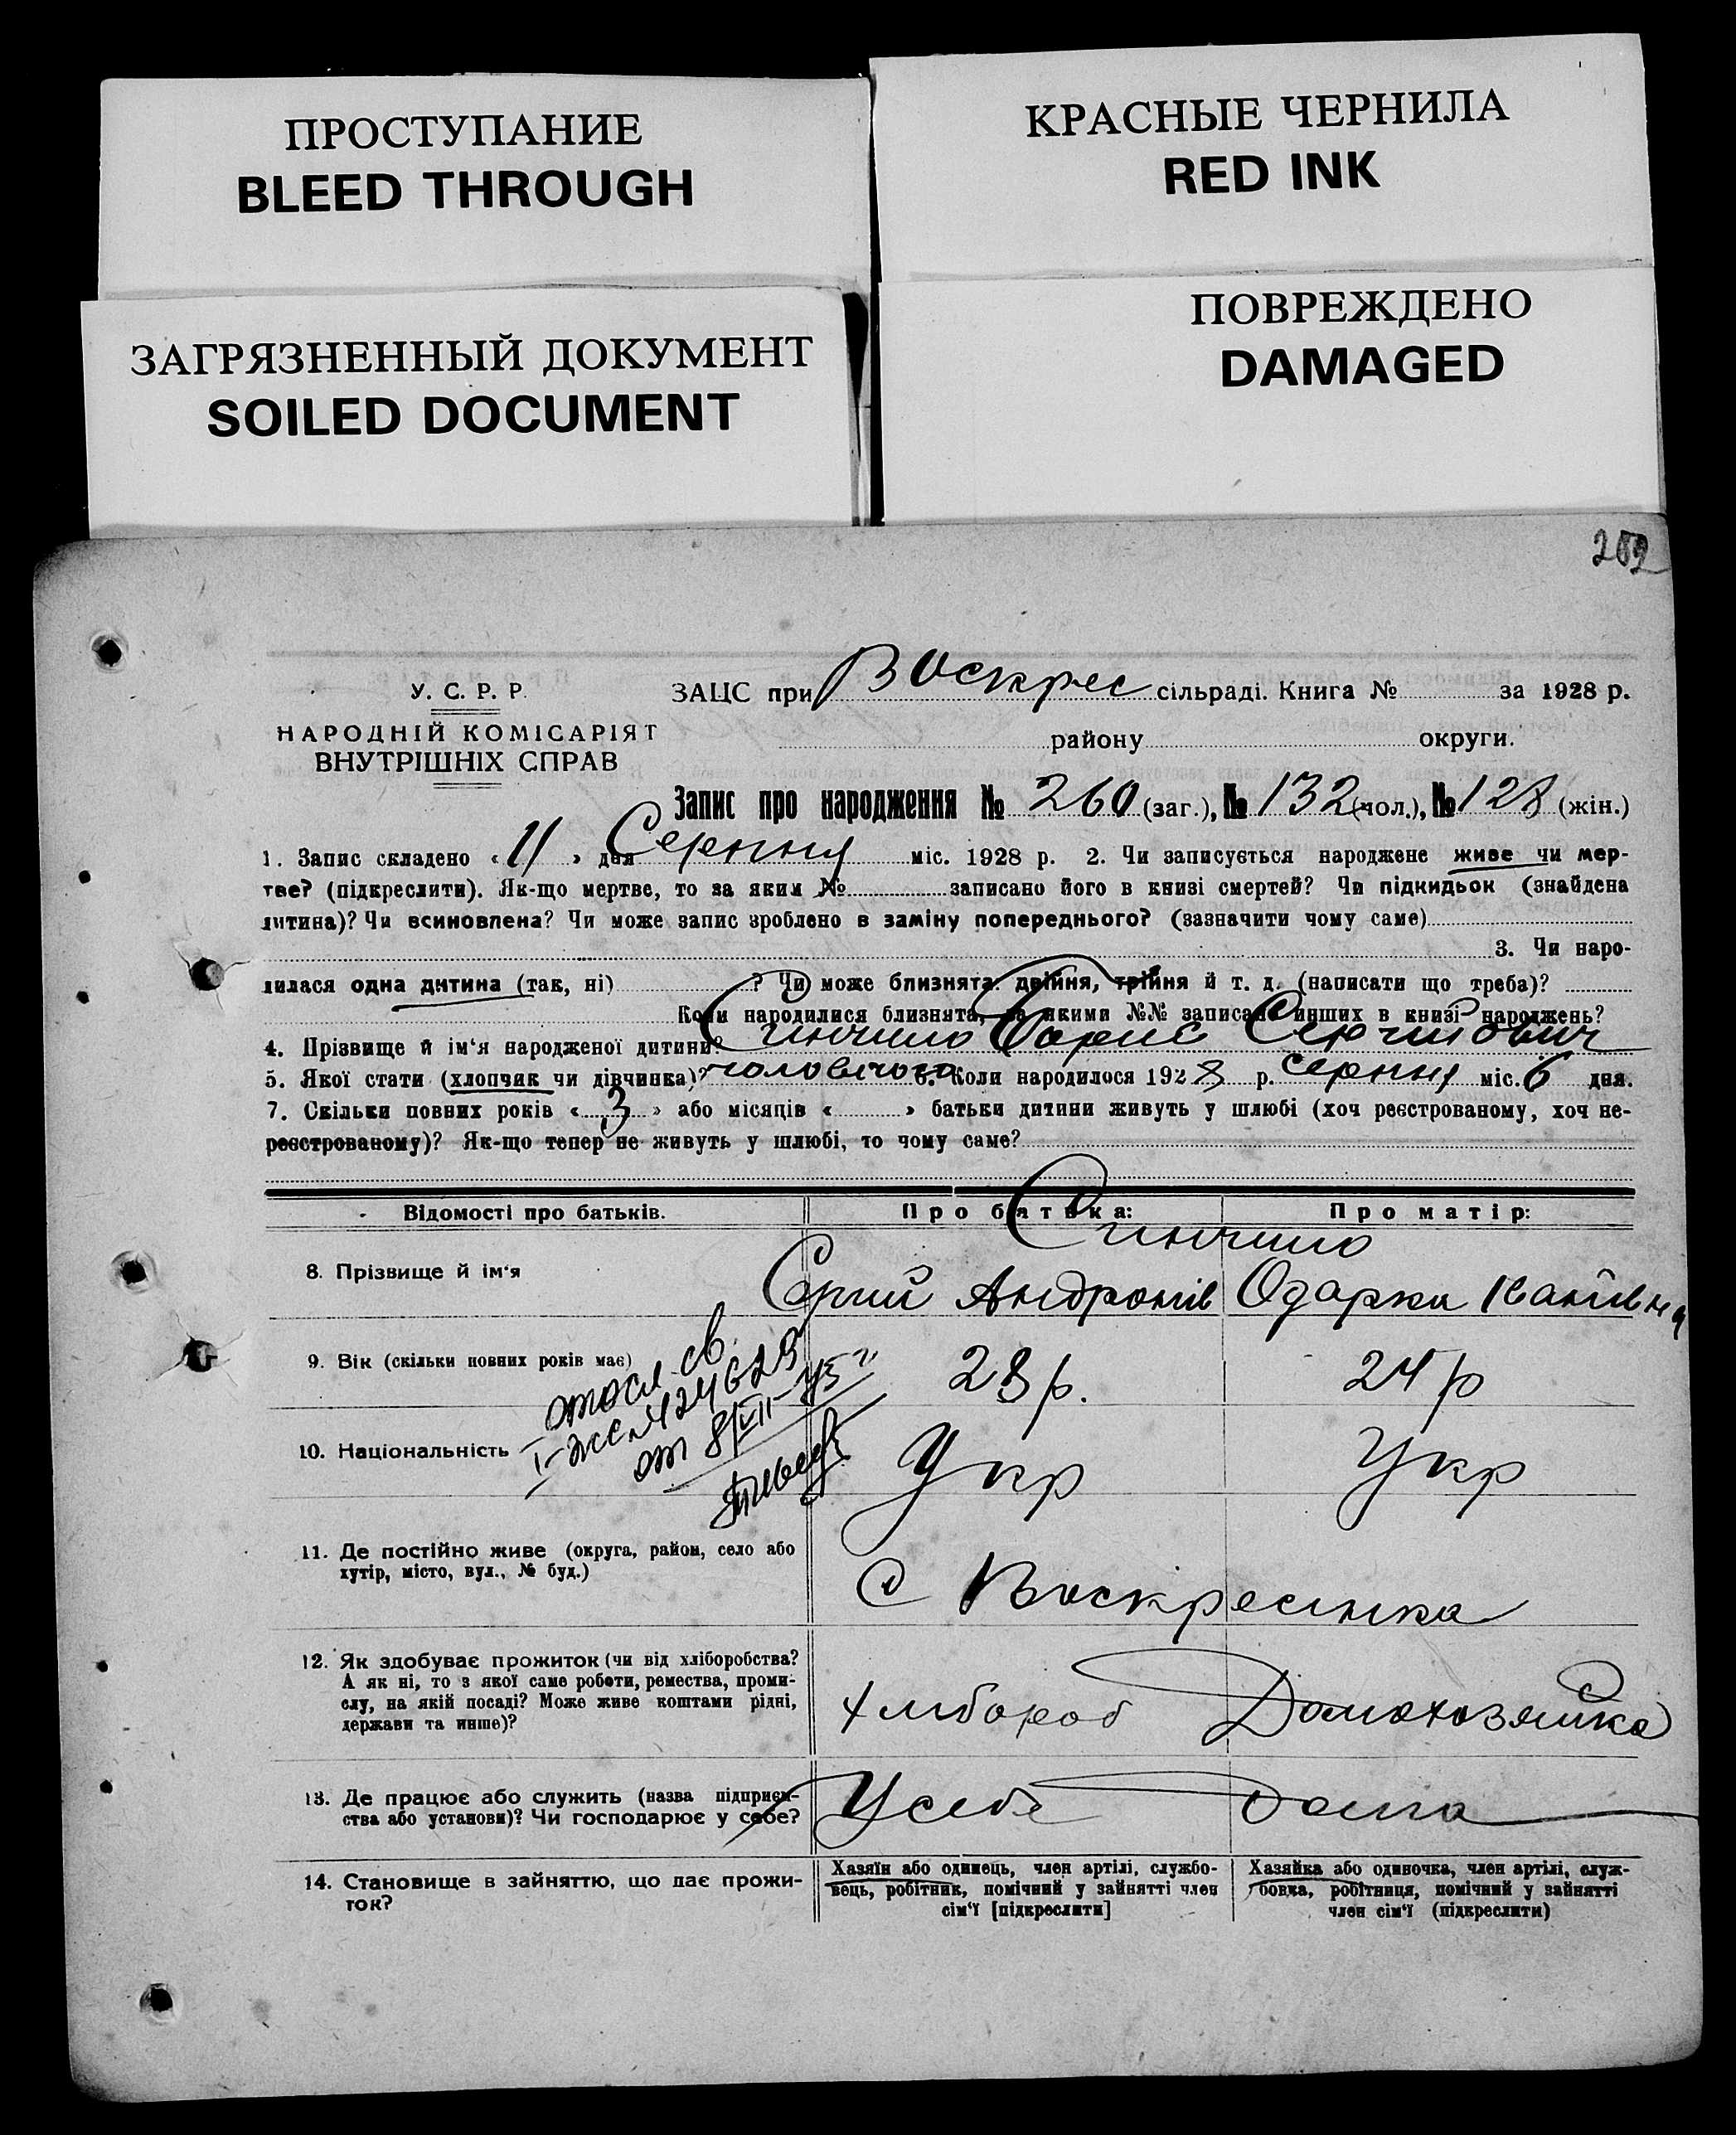 ПРОСТУПАНИЕ
BLEED THROUGH
КРАСНЫЕ ЧЕРНИЛА
RED INK
ЗАГРЯЗНЕННЫЙ ДОКУМЕНТ
SOILED DOCUMENT
ПОВРЕЖДЕНО
DAMAGED
У. С. Р. Р.
НАРОДНІЙ КОМІСАРІЯТ
ВНУТРІШНІХ СПРАВ
ЗАЦС при Воскрес сільраді. Книга № за 1928 р.
району округи.
Запис про народження № 260 (заг.), № 132 (чол.), № 128 (жін.)
1. Запис складено « 11 » дня Серпня міс. 1928 р. 2. Чи записується народжене живе чи мер-
тве? (підкреслити). Як-що мертве, то за яким № записано його в книзі смертей? Чи підкидьок (знайдена
дитина)? Чи всиновлена? Чи може запис зроблено в заміну попереднього? (зазначити чому саме)
3. Чи наро-
дилася одна дитина (так, ні) ? Чи може близнята: двійня, трійня й т. д. (написати що треба)?
Коли народилися близнята, за якими №№ записано инших в книзі народжень?
4. Прізвище й ім‘я народженої дитини? Борис
5. Якої стати (хлопчик чи дівчинка)? чоловічого 6. Коли народилося 1928 р. серпня міс. 6 дня.
7. Скільки повних років « 3 » або місяців « » батьки дитини живуть у шлюбі (хоч реєстрованому, хоч не-
реєстрованому)? Як-що тепер не живуть у шлюбі, то чому саме?
Відомості про батьків.
Про батька:
Про матір:
8. Прізвище й ім‘я
Одарка Іванівна
9. Вік (скільки повних років має)
28 р.
24 р
10. Національність
Укр
Укр
11. Де постійно живе (округа, район, село або
хутір, місто, вул., № буд.)
С Воскресінка
12. Як здобуває прожиток (чи від хліборобства?
А як ні, то з якої саме роботи, ремества, проми-
слу, на якій посаді? Може живе коштами рідні,
держави та инше)?
Хлібороб
Домохозяйка
13. Де працює або служить (назва підприєм-
ства або установи)? Чи господарює у себе?
У себе
дома
14. Становище в зайняттю, що дає прожи-
ток?
Хазяїн або одинець, член артілі, службо-
вець, робітник, помічний у зайнятті член
сім‘ї [підкреслити]
Хазяйка або одиночка, член артілі, служ-
бовка, робітниця, помічний у зайнятті
член сім‘ї (підкреслити)